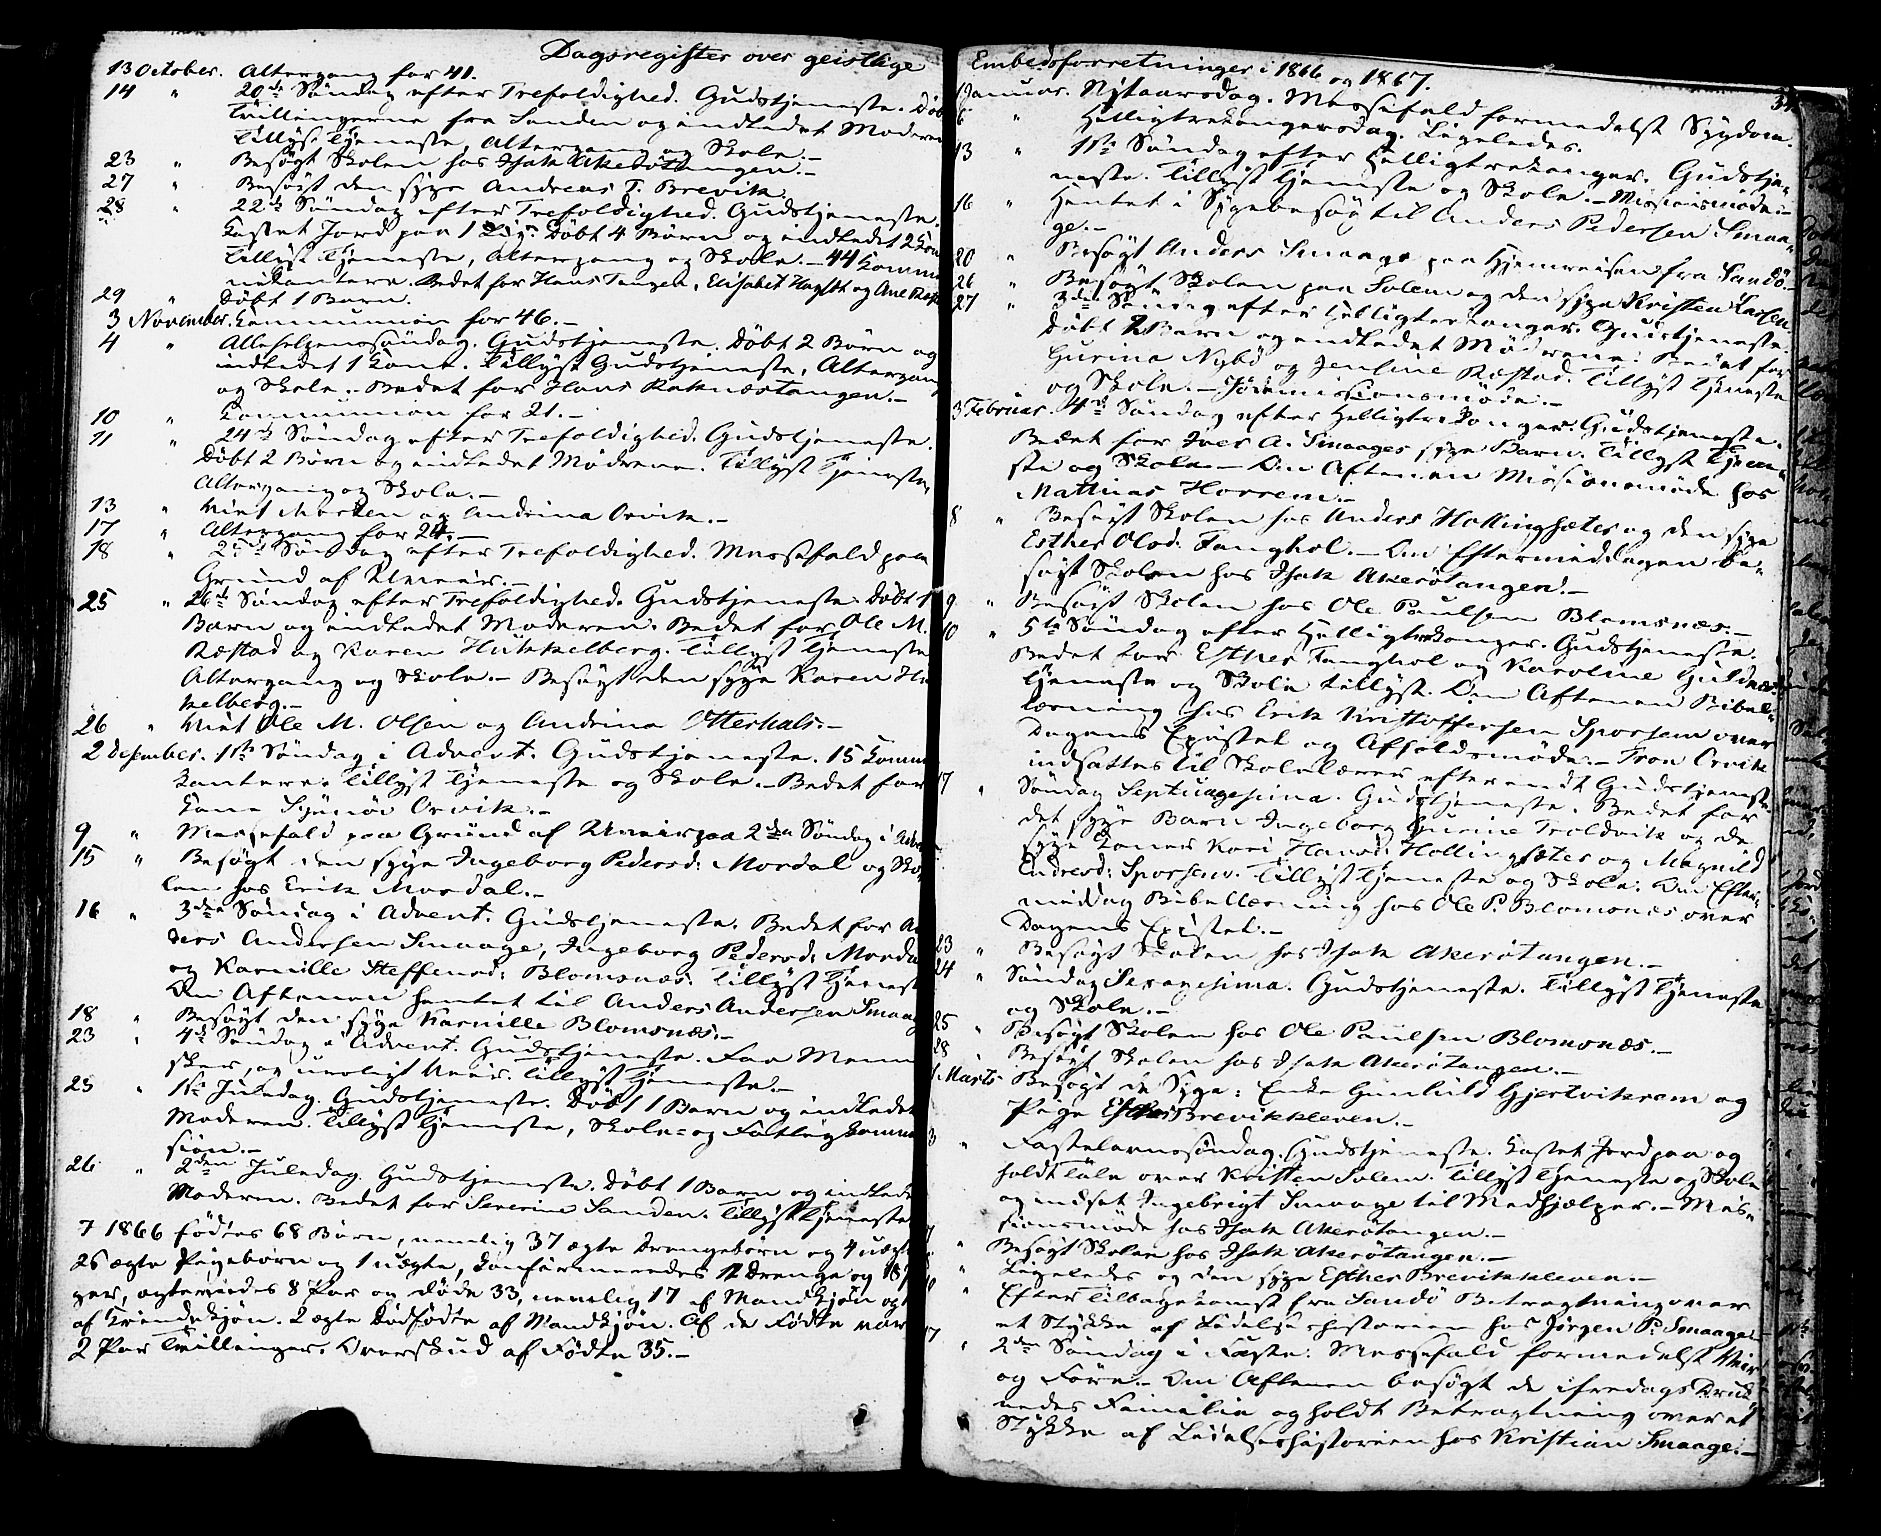 Dagsregister over geistlige
13 October. Altergang for 41.
14 " 20de Søndag efter Trefoldighed. Gudstjeneste. Døbt
Tvillingerne fra Sanden og indledet Moderen
Tillyst Tjeneste, Altergang og Skole.-
23 " Besøgt Skolen hos Isak Akerøtangen.-
27 " Besøgt den syge Andreas T. Brevik.
28 " 22de Søndag efter Trefoldighed. Gudstjeneste.
Kastet Jord paa 1 Lig. Døbt 4 Børn og indledet 2 Kon
Tillyst Tjeneste, Altergang og Skole.- 44 Kommu
nikantere. Bedet for Hans Tangen, Elisabet og Ane
29 " Døbt 1 Barn.
3 November. Kommunion for 46.-
4 " Allehelgenssøndag. Gudstjeneste. Døbt 2 Børn og
indledet 1 Kone. Tillyst Gudstjeneste, Altergang
og Skole.- Bedet for Hans Raknestangen.-
10 " Kommunion for 21.-
11 " 24de Søndag efter Trefoldighed. Gudstjeneste.
Døbt 2 Børn og indledet Mødrene. Tillyst Tjeneste,
Altergang og Skole.-
13 " Viet Morten og Andrina Orvik.-
17 " Altergang for 24.-
18 " 25de Søndag efter Trefoldighed. Messefald paa
Grund af Uveir.-
25 " 26de Søndag efter Trefoldighed. Gudstjeneste. Døbt 1
Barn og indledet Moderen. Bedet for Ole M.
Ræstad og Karen Hukkelberg. Tillyst Tjeneste
Altergang og Skole.- Besøgt den syge Karen Hu
kelberg.-
26 " Viet Ole M. Olsen og Andrina Otterhals.-
2 Desember. 1ste Søndag i Advent. Gudstjeneste. 15 Kommu
kantere. Tillyst Tjeneste og Skole.- Bedet for
Kone Synnøv Orvik.-
9 " Messefald paa Grund af Uveir paa 2den Søndag i Adve
15 " Besøgt den syge Ingeborg Pedersd: Mordal og Sko-
len hos Erik Mordal.-
16 " 3die Søndag i Advent. Gudstjeneste. Bedet for An
ders Andersen Smaage, Ingeborg Pedersd: Mordal
og Karnille Steffensd: Blomsnæs. Tillyst Tjenest
Om Aftenen hentet til Anders Andersen Smaag
18 " Besøgt den syge Karnille Blomsnæs.-
23 " 4de Søndag i Advent. Gudstjeneste. Faa Menne
sker, og uroligt Veir. Tillyst Tjeneste.-
25 " 1ste Juledag. Gudstjeneste. Døbt 1 Barn og indledet
Moderen. Tillyst Tjeneste, Skole- og Fattigkommi
sion.-
26 " 2den Juledag. Gudstjeneste. Døbt 1 Barn og indlede
Moderen. Bedet for Severine Sanden. Tillyst Tjeneste
I 1866 fødtes 68 Børn, nemlig 37 ægte Drengebørn og 4 uægte
26 ægte Pigebørn og 1 uægte, konfirmeredes 12 Drenge og 18 Pi
ger, ægteviedes 8 Par og døde 33, nemlig 17 af Mandkjøn og 1
af Kvindekjøn. 2 ægte Dødfødte af Mandkjøn. Af de Fødte var
2 Par Tvillinger. Overskud af Fødte 35.-
Embedsforretninger i 1866 og 1867.
1 Januar. Nytaarsdag. Messefald formedelst Sygdom.
6 " Helligtrekongersdag. Ligeledes.
13 " 1ste Søndag efter Helligtrekonger. Gudstje-
neste. Tillyst Tjeneste og Skole.- Missionsmøde.-
16 " Hentet i Sygebesøg til Anders Pedersen Smaa-
ge.-
20 " Besøgt Anders Smaage paa Hjemreisen fra Sandø.-
26 " Besøgt Skolen paa Solem og den syge Kristen Larsen.
27 " 3die Søndag efter Helligtrekonger. Gudstjeneste.
Døbt 2 Børn og indledet Mødrene. Bedet for
Gurina Nybø og Jensine Ræstad. Tillyst Tjeneste
og Skole.- missionsmøde.-
3 Februar. 4de Søndag efter Helligtrekonger. Gudstjeneste.
Bedet for Iver A. Smaages syge Barn. Tillyst Tjene-
ste og Skole.- Om Aftenen Missionsmøde hos
Mathias Horrem.-
8 " Besøgt Skolen hos Anders Hollingsæter og den syge
Esther Olsd. Tanghol.- Om Eftermiddagen be-
søgt Skolen hos Isak Akerøtangen.-
9 " Besøgt Skolen hos Ole Paulsen Blomsnæs.-
10 " 5te Søndag efter Helligtrekonger. Gudstjeneste.
Bedet for Esther Tanghol og Karoline Guldnæs.
Tjeneste og Skole tillyst. Om Aftenen Bibel-
læsning hos Erik Kristoffersen Sporsem over
Dagens Epistel og Afholdsmøde.- Tron Orvik
indsattes til Skolelærer efter endt Gudstjenest
17 " Søndag Septuagesima. Gudstjeneste. Bedet for
det syge Barn Ingeborg Gurine Troldvik og de
syge Koner Kari Hansd. Hollingsæter og Magnild
Endresd: Sporsem. Tillyst Tjeneste og Skole. Om Efter-
middag Bibellæsning hos Ole P. Blomsnæs over
Dagens Epistel.-
23 " Besøgt Skolen hos Isak Akerøtangen.-
24 " Søndag Sexagesima. Gudstjeneste. Tillyst Tjeneste
og Skole.-
25 " Besøgt Skolen hos Ole Paulsen Blomsnæs.-
28 " Besøgt Skolen hos Isak Akerøtangen.-
1 Marts Besøgt de Syge: Enke Gunhild Gjertvikrem og
Pige Esther Brevikkleven.-
3 " Fastelavnssøndag. Gudstjeneste. Kastet Jord paa og
holdt Tale over Kristen Solem. Tillyst Tjeneste og Skole
og indsat Ingebrigt Smaage til Medhjælper.- Mis-
sionsmøde hos Isak Akerøtangen.-
7 " Besøgt Skolen hos Isak Akerøtangen.-
" Ligeledes og den syge Esther Brevikkleven.-
10 " Efter Tilbagekomst fra Sandø Betragtning over
et Stykke af Lidelseshistorien hos Jørgen P. Smaage.-
17 " 2den Søndag i Faste. Messefald formedelst Veir
og Føre.- Om Aftenen besøgt de ifredags Druk
nedes Familie og holdt Betragtning over et
Stykke af Lidelseshistorien hos Kristian Smaage.-